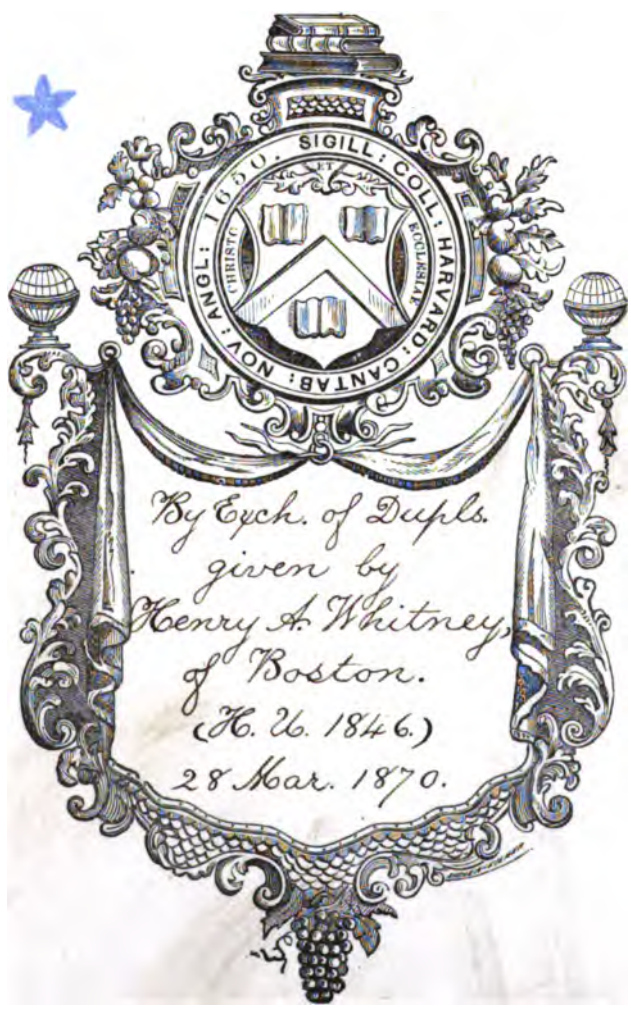 SIGILL: COLL: HARVARD: CANTAB: NOV: ANGL: 1650.
ET
CHRISTO
ECCLESIAE
By Exch. of Dupls.
given by
Henry A. Whitney,
of Boston.
(H. U. 1846.)
28 Mar. 1870.